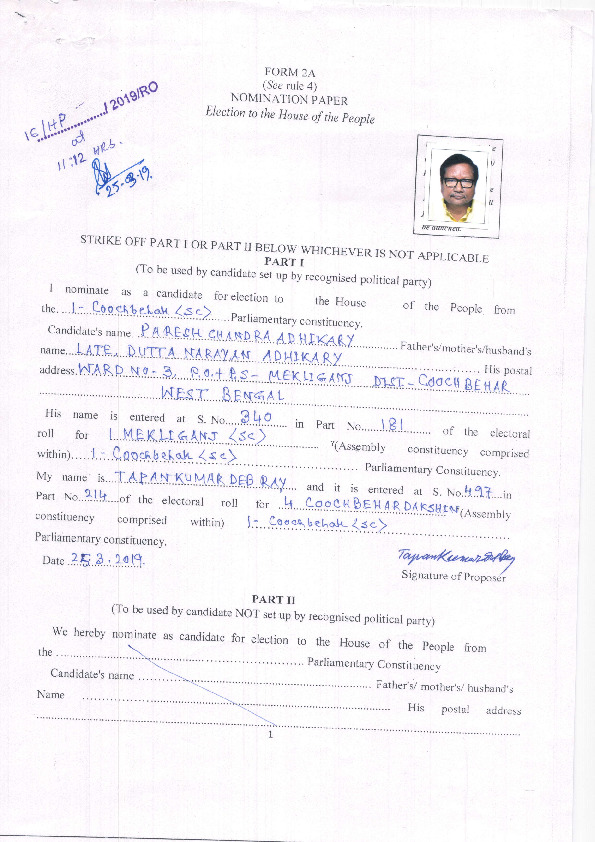 FORM 2A
(See rule 4)
NOMINATION PAPER
Election to the House of the People
1C/HP ............/2019/RO
at
11:12 HRS.
25-03-19.
STRIKE OFF PART I OR PART II BELOW WHICHEVER IS NOT APPLICABLE
PART I
(To be used by candidate set up by recognised political party)
I nominate as a candidate for election to the House of the People from
the....1-Coochbehar (SC)....Parliamentary constituency.
Candidate's name PARESH CHANDRA ADHIKARY............ Father's/mother's/husband's
name...LATE. DUTTA NARAYAN ADHIKARY............ His postal
address WARD NO-3, P.O+P.S- MEKLIGANJ DIST-COOCHBEHAR
WEST BENGAL
His name is entered at S. No....340.... in Part No....181.... of the electoral
roll for 1 MEKLIGANJ (SC)............ (Assembly constituency comprised
within)....1-Coochbehar (SC)............ Parliamentary Constituency.
My name is...TAPAN KUMAR DEB RAY.... and it is entered at S. No.497...in
Part No.214...of the electoral roll for 4 COOCHBEHAR DAKSHIN (Assembly
constituency comprised within) 1-Coochbehar (SC)............
Parliamentary constituency.
Date 25.3.2019.
Signature of Proposer
PART II
(To be used by candidate NOT set up by recognised political party)
We hereby nominate as candidate for election to the House of the People from
the ............ Parliamentary Constituency
Candidate's name ............ Father's/ mother's/ husband's
Name ............ His postal address
............
1